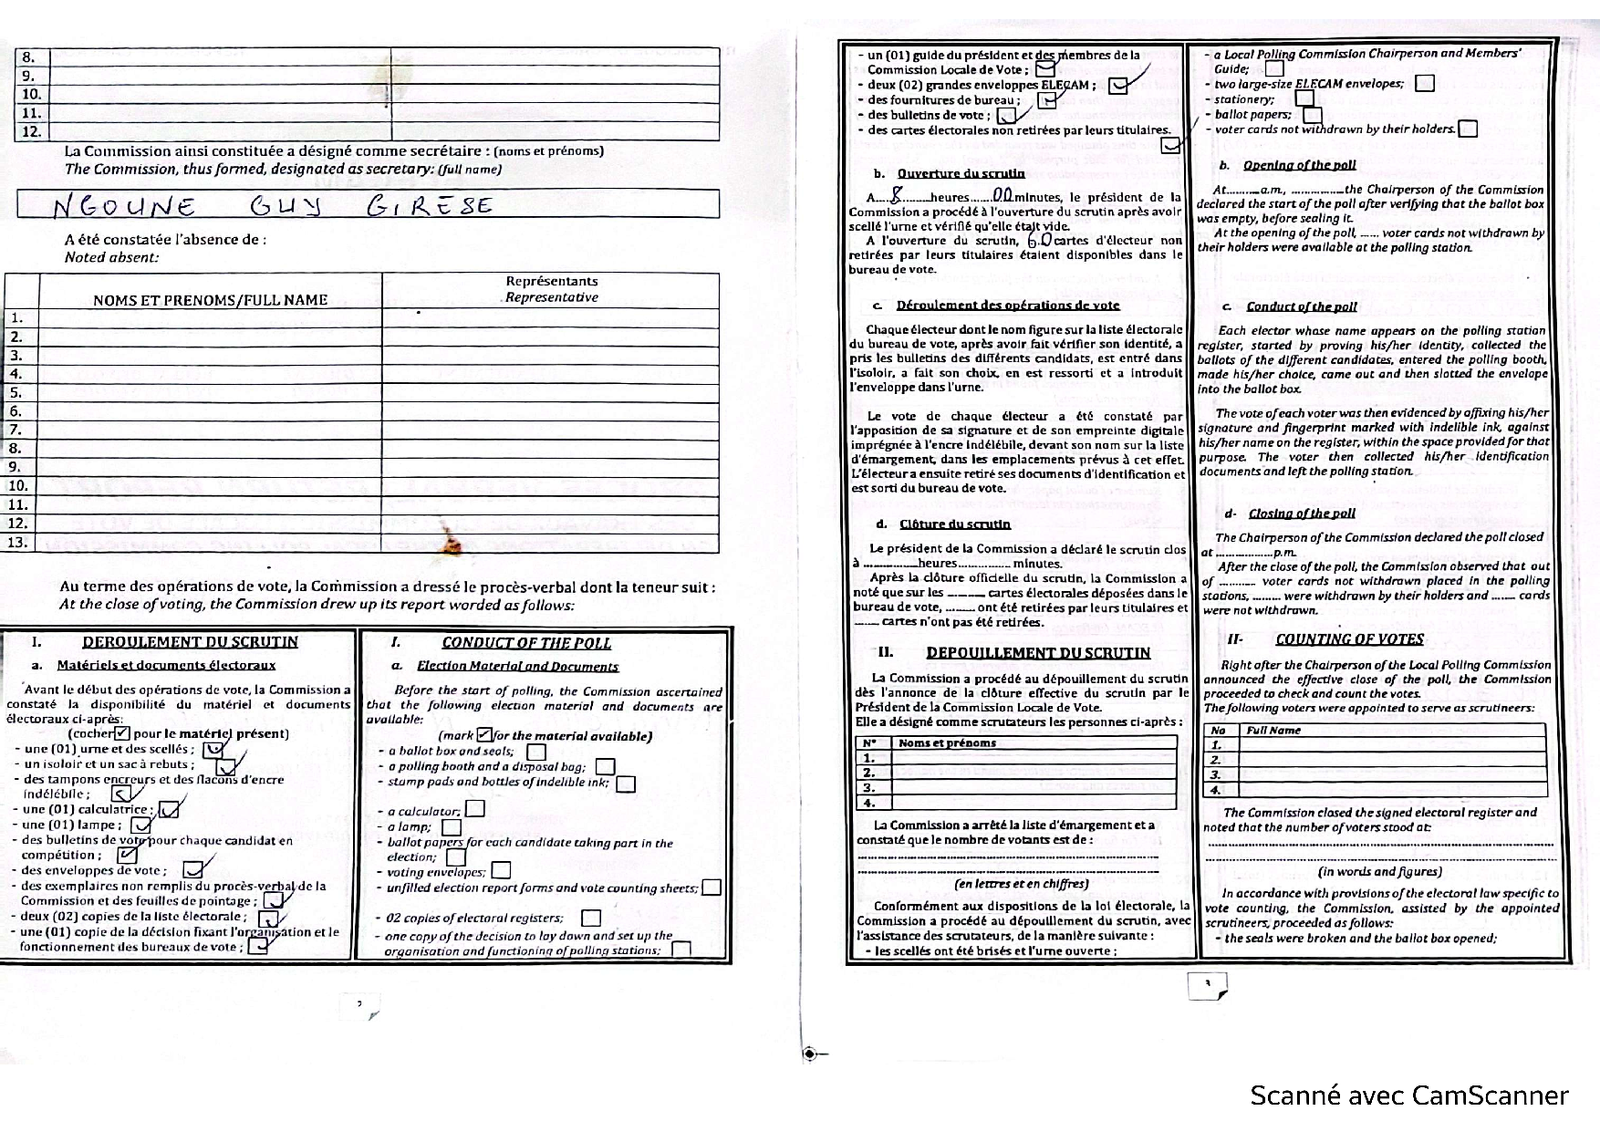 8.
9.
10.
11.
12.
La Commission ainsi constituée a désigné comme secrétaire : (noms et prénoms)
The Commission, thus formed, designated as secretary: (full name)
NGOUNE GUY GIRESE
A été constatée l'absence de :
Noted absent:
NOMS ET PRENOMS/FULL NAME
Représentants
Representative
1.
2.
3.
4.
5.
6.
7.
8.
9.
10.
11.
12.
13.
Au terme des opérations de vote, la Commission a dressé le procès-verbal dont la teneur suit :
At the close of voting, the Commission drew up its report worded as follows:
I. DEROULEMENT DU SCRUTIN
a. Matériels et documents électoraux
Avant le début des opérations de vote, la Commission a
constaté la disponibilité du matériel et documents
électoraux ci-après:
(cocher ☑ pour le matériel présent)
- une (01) urne et des scellés ;
- un isoloir et un sac à rebuts ;
- des tampons encreurs et des flacons d'encre
indélébile ;
- une (01) calculatrice ;
- une (01) lampe ;
- des bulletins de vote pour chaque candidat en
compétition ;
- des enveloppes de vote ;
- des exemplaires non remplis du procès-verbal de la
Commission et des feuilles de pointage ;
- deux (02) copies de la liste électorale ;
- une (01) copie de la décision fixant l'organisation et le
fonctionnement des bureaux de vote ;
I. CONDUCT OF THE POLL
a. Election Material and Documents
Before the start of polling, the Commission ascertained
that the following election material and documents are
available:
(mark ☑ for the material available)
- a ballot box and seals;
- a polling booth and a disposal bag;
- stamp pads and bottles of indelible ink;
- a calculator;
- a lamp;
- ballot papers for each candidate taking part in the
election;
- voting envelopes;
- unfilled election report forms and vote counting sheets;
- 02 copies of electoral registers;
- one copy of the decision to lay down and set up the
organisation and functioning of polling stations;
2
- un (01) guide du président et des membres de la
Commission Locale de Vote ;
- deux (02) grandes enveloppes ELECAM ;
- des fournitures de bureau ;
- des bulletins de vote ;
- des cartes électorales non retirées par leurs titulaires.
b. Ouverture du scrutin
A....8.........heures......00minutes, le président de la
Commission a procédé à l'ouverture du scrutin après avoir
scellé l'urne et vérifié qu'elle était vide.
A l'ouverture du scrutin, 60 cartes d'électeur non
retirées par leurs titulaires étaient disponibles dans le
bureau de vote.
c. Déroulement des opérations de vote
Chaque électeur dont le nom figure sur la liste électorale
du bureau de vote, après avoir fait vérifier son identité, a
pris les bulletins des différents candidats, est entré dans
l'isoloir, a fait son choix, en est ressorti et a introduit
l'enveloppe dans l'urne.
Le vote de chaque électeur a été constaté par
l'apposition de sa signature et de son empreinte digitale
imprégnée à l'encre indélébile, devant son nom sur la liste
d'émargement, dans les emplacements prévus à cet effet.
L'électeur a ensuite retiré ses documents d'identification et
est sorti du bureau de vote.
d. Clôture du scrutin
Le président de la Commission a déclaré le scrutin clos
à ...............heures............... minutes.
Après la clôture officielle du scrutin, la Commission a
noté que sur les .......... cartes électorales déposées dans le
bureau de vote, ........ ont été retirées par leurs titulaires et
....... cartes n'ont pas été retirées.
II. DEPOUILLEMENT DU SCRUTIN
La Commission a procédé au dépouillement du scrutin
dès l'annonce de la clôture effective du scrutin par le
Président de la Commission Locale de Vote.
Elle a désigné comme scrutateurs les personnes ci-après :
N° Noms et prénoms
1.
2.
3.
4.
La Commission a arrêté la liste d'émargement et a
constaté que le nombre de votants est de :
(en lettres et en chiffres)
Conformément aux dispositions de la loi électorale, la
Commission a procédé au dépouillement du scrutin, avec
l'assistance des scrutateurs, de la manière suivante :
- les scellés ont été brisés et l'urne ouverte ;
- a Local Polling Commission Chairperson and Members'
Guide;
- two large-size ELECAM envelopes;
- stationery;
- ballot papers;
- voter cards not withdrawn by their holders.
b. Opening of the poll
At..........a.m., ................the Chairperson of the Commission
declared the start of the poll after verifying that the ballot box
was empty, before sealing it.
At the opening of the poll, ...... voter cards not withdrawn by
their holders were available at the polling station.
c. Conduct of the poll
Each elector whose name appears on the polling station
register, started by proving his/her identity, collected the
ballots of the different candidates, entered the polling booth,
made his/her choice, came out and then slotted the envelope
into the ballot box.
The vote of each voter was then evidenced by affixing his/her
signature and fingerprint marked with indelible ink, against
his/her name on the register, within the space provided for that
purpose. The voter then collected his/her identification
documents and left the polling station.
d- Closing of the poll
The Chairperson of the Commission declared the poll closed
at ..................p.m.
After the close of the poll, the Commission observed that out
of .......... voter cards not withdrawn placed in the polling
stations, ........ were withdrawn by their holders and ....... cards
were not withdrawn.
II- COUNTING OF VOTES
Right after the Chairperson of the Local Polling Commission
announced the effective close of the poll, the Commission
proceeded to check and count the votes.
The following voters were appointed to serve as scrutineers:
No Full Name
1.
2.
3.
4.
The Commission closed the signed electoral register and
noted that the number of voters stood at:
(in words and figures)
In accordance with provisions of the electoral law specific to
vote counting, the Commission, assisted by the appointed
scrutineers, proceeded as follows:
- the seals were broken and the ballot box opened;
3
Scanné avec CamScanner